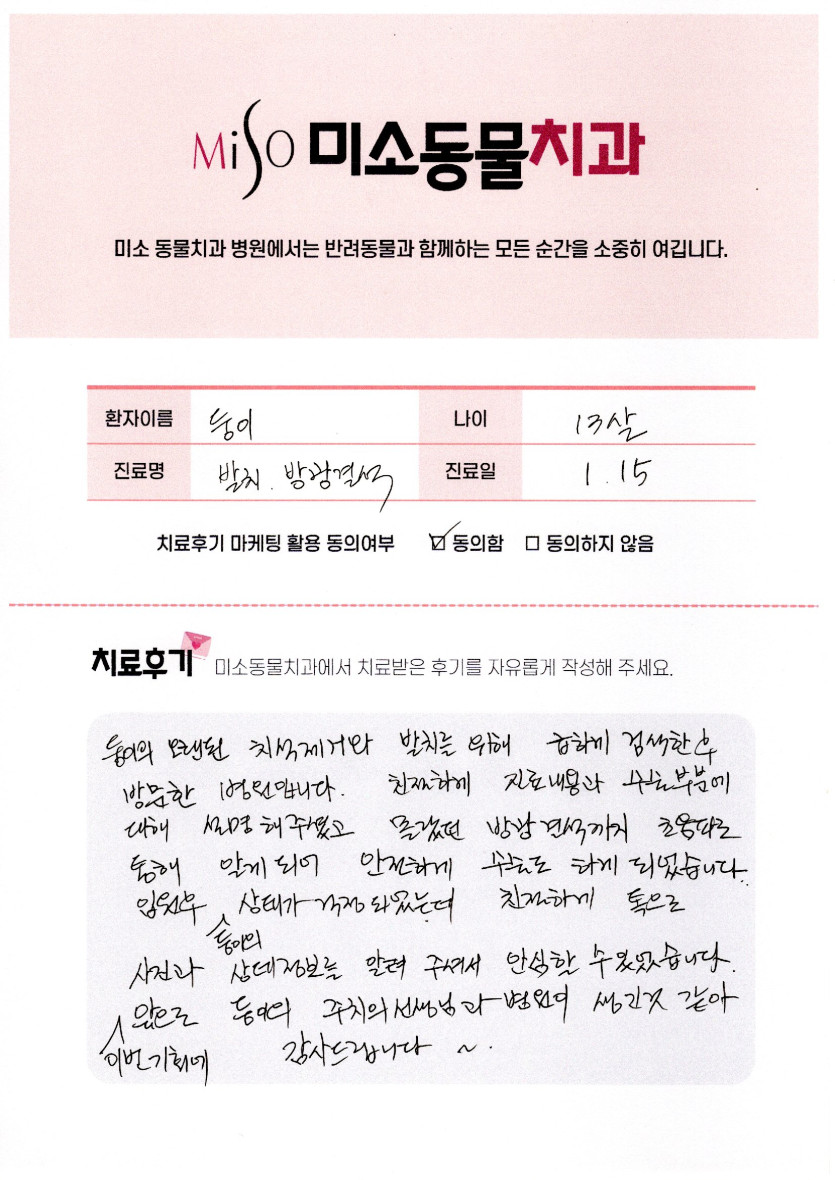 MiSO 미소동물치과
미소 동물치과 병원에서는 반려동물과 함께하는 모든 순간을 소중히 여깁니다.
환자이름 둥이 나이 13살
진료명 발치. 방광결석 진료일 1. 15
치료후기 마케팅 활용 동의여부 ☑ 동의함 □ 동의하지 않음
치료후기 미소동물치과에서 치료받은 후기를 자유롭게 작성해 주세요.
둥이의 오랜된 치석제거와 발치를 위해 급하게 검색한 후
방문한 병원입니다. 친절하게 진료내용과 수술부분에
대해 설명해주셨고 몰랐던 방광결석까지 초음파로
통해 알게 되어 안전하게 수술도 하게 되었습니다.
입원후 상태가 걱정되었는데 친절하게 톡으로
둥이의
사진과 상태정보를 알려 주셔서 안심할 수 있었습니다.
앞으로 둥이의 주치의선생님과 병원이 생긴것 같아
이번기회에 감사드립니다 ~.